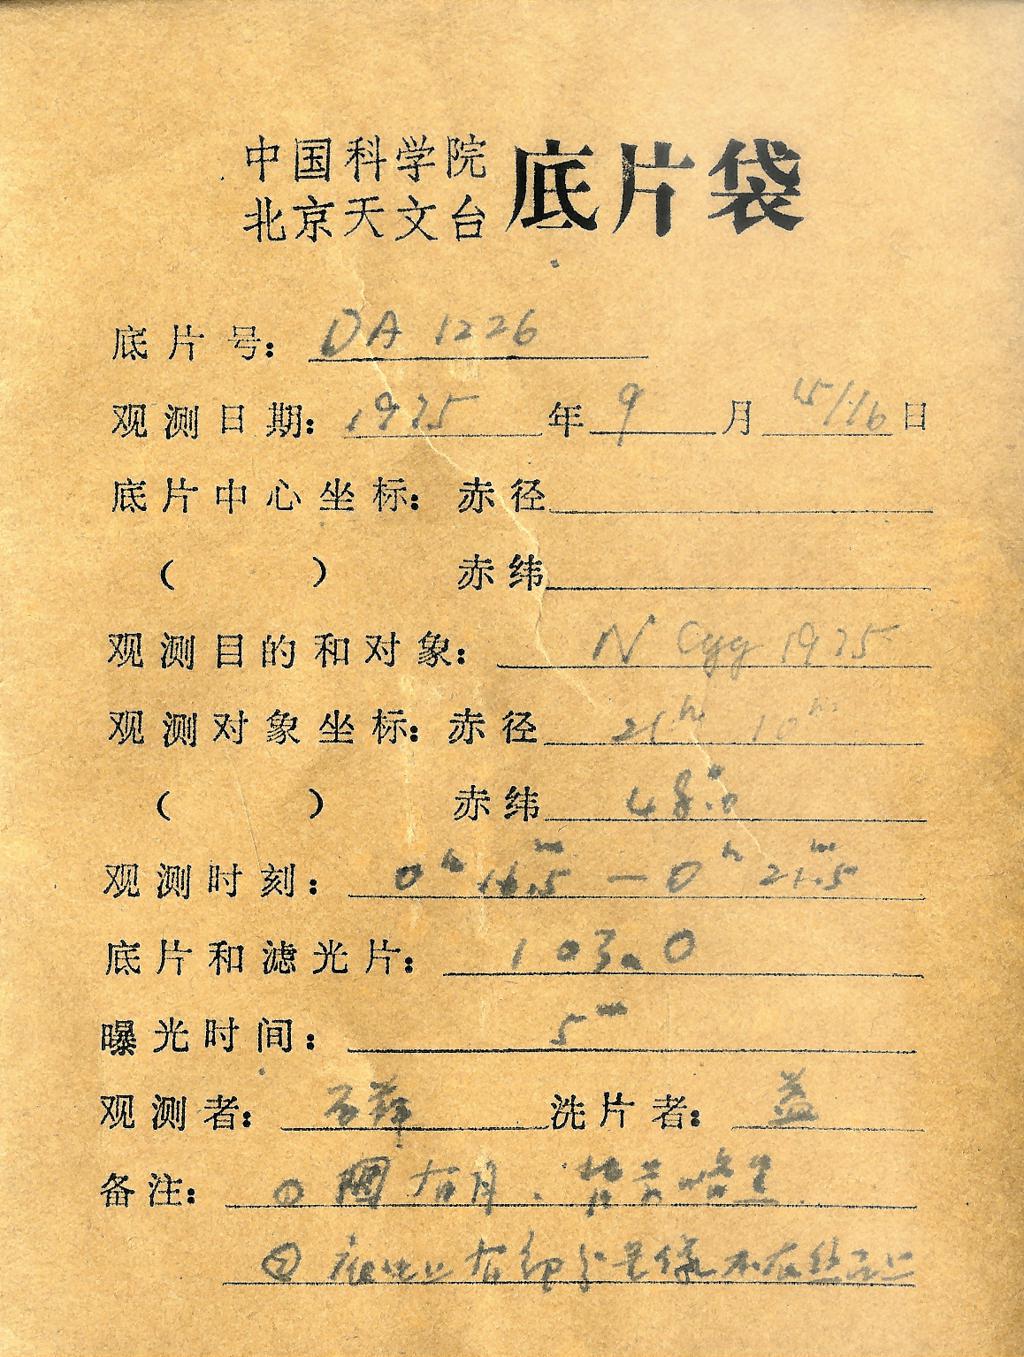 中国科学院
北京天文台 底片袋
底片号: DA 1226
观测日期: 1975 年 9 月 15/16 日
底片中心坐标: 赤径
( ) 赤纬
观测目的和对象: N Cyg 1975
观测对象坐标: 赤径 21h 10m
( ) 赤纬 48.°0
观测时刻: 0h 16.m5 — 0h 21.m5
底片和滤光片: 103aO
曝光时间: 5m
观测者: 洗片者: 益
备注: ① 有月.
② 有部分星像不在